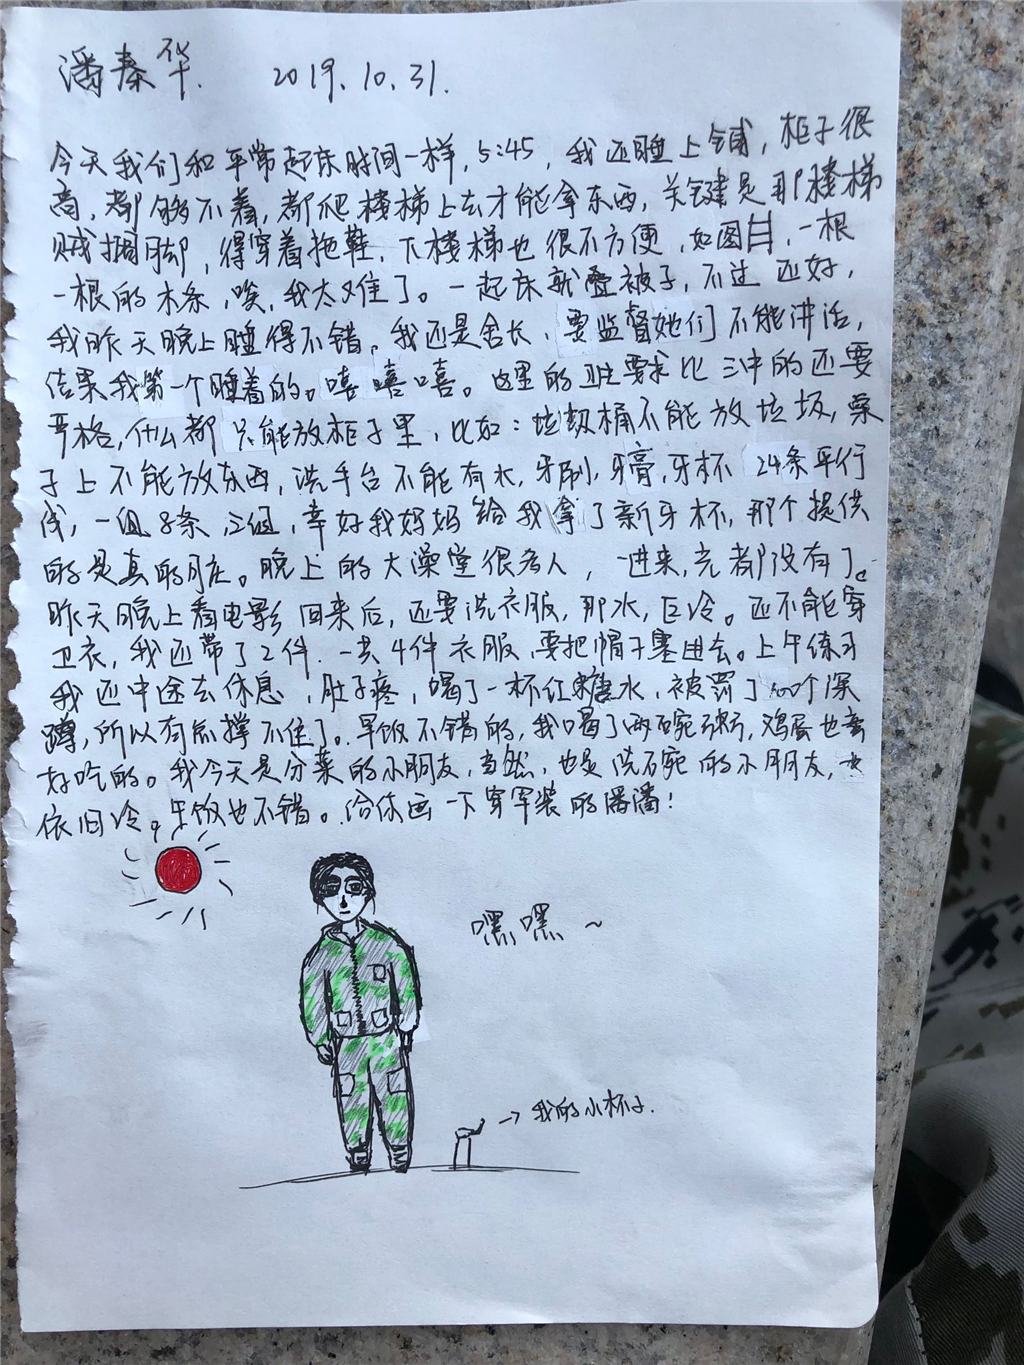 潘秦华. 2019.10.31.
今天我们和平常起床时间一样，5:45，我还睡上铺，柜子很
高，都够不着，都爬楼梯上去才能拿东西，关键是那楼梯
贼捆脚，得穿着拖鞋，下楼梯也很不方便，如图目，一根
一根的木条，唉，我太难了。一起床就叠被子，不过还好，
我昨天晚上睡得不错，我还是舍长，要监督她们不能讲话，
结果我第一个睡着的。嘻嘻嘻。这里的卫生要求比三中的还要
严格，什么都只能放柜子里，比如：垃圾桶不能放垃圾，桌
子上不能放东西，洗手台不能有水，牙刷，牙膏，牙杯 24条平行
线，一组8条，三组，幸好我妈妈给我拿了新牙杯，那个提供
的是真的脏。晚上的大澡堂很多人，一进来，光都没有了。
昨天晚上看电影回来后，还要洗衣服，那水，巨冷。还不能穿
卫衣，我还带了2件，一共4件衣服，要把帽子塞进去。上午练习
我还中途去休息，肚子疼，喝了一杯红糖水，被罚了100个深
蹲，所以有点撑不住了。早饭不错的，我喝了两碗粥，鸡蛋也蛮
好吃的。我今天是分菜的小朋友，当然，也是洗碗的小朋友，水
依旧冷。午饭也不错。给你画一下穿军装的潘潘！
嘿嘿~
→我的小杯子.